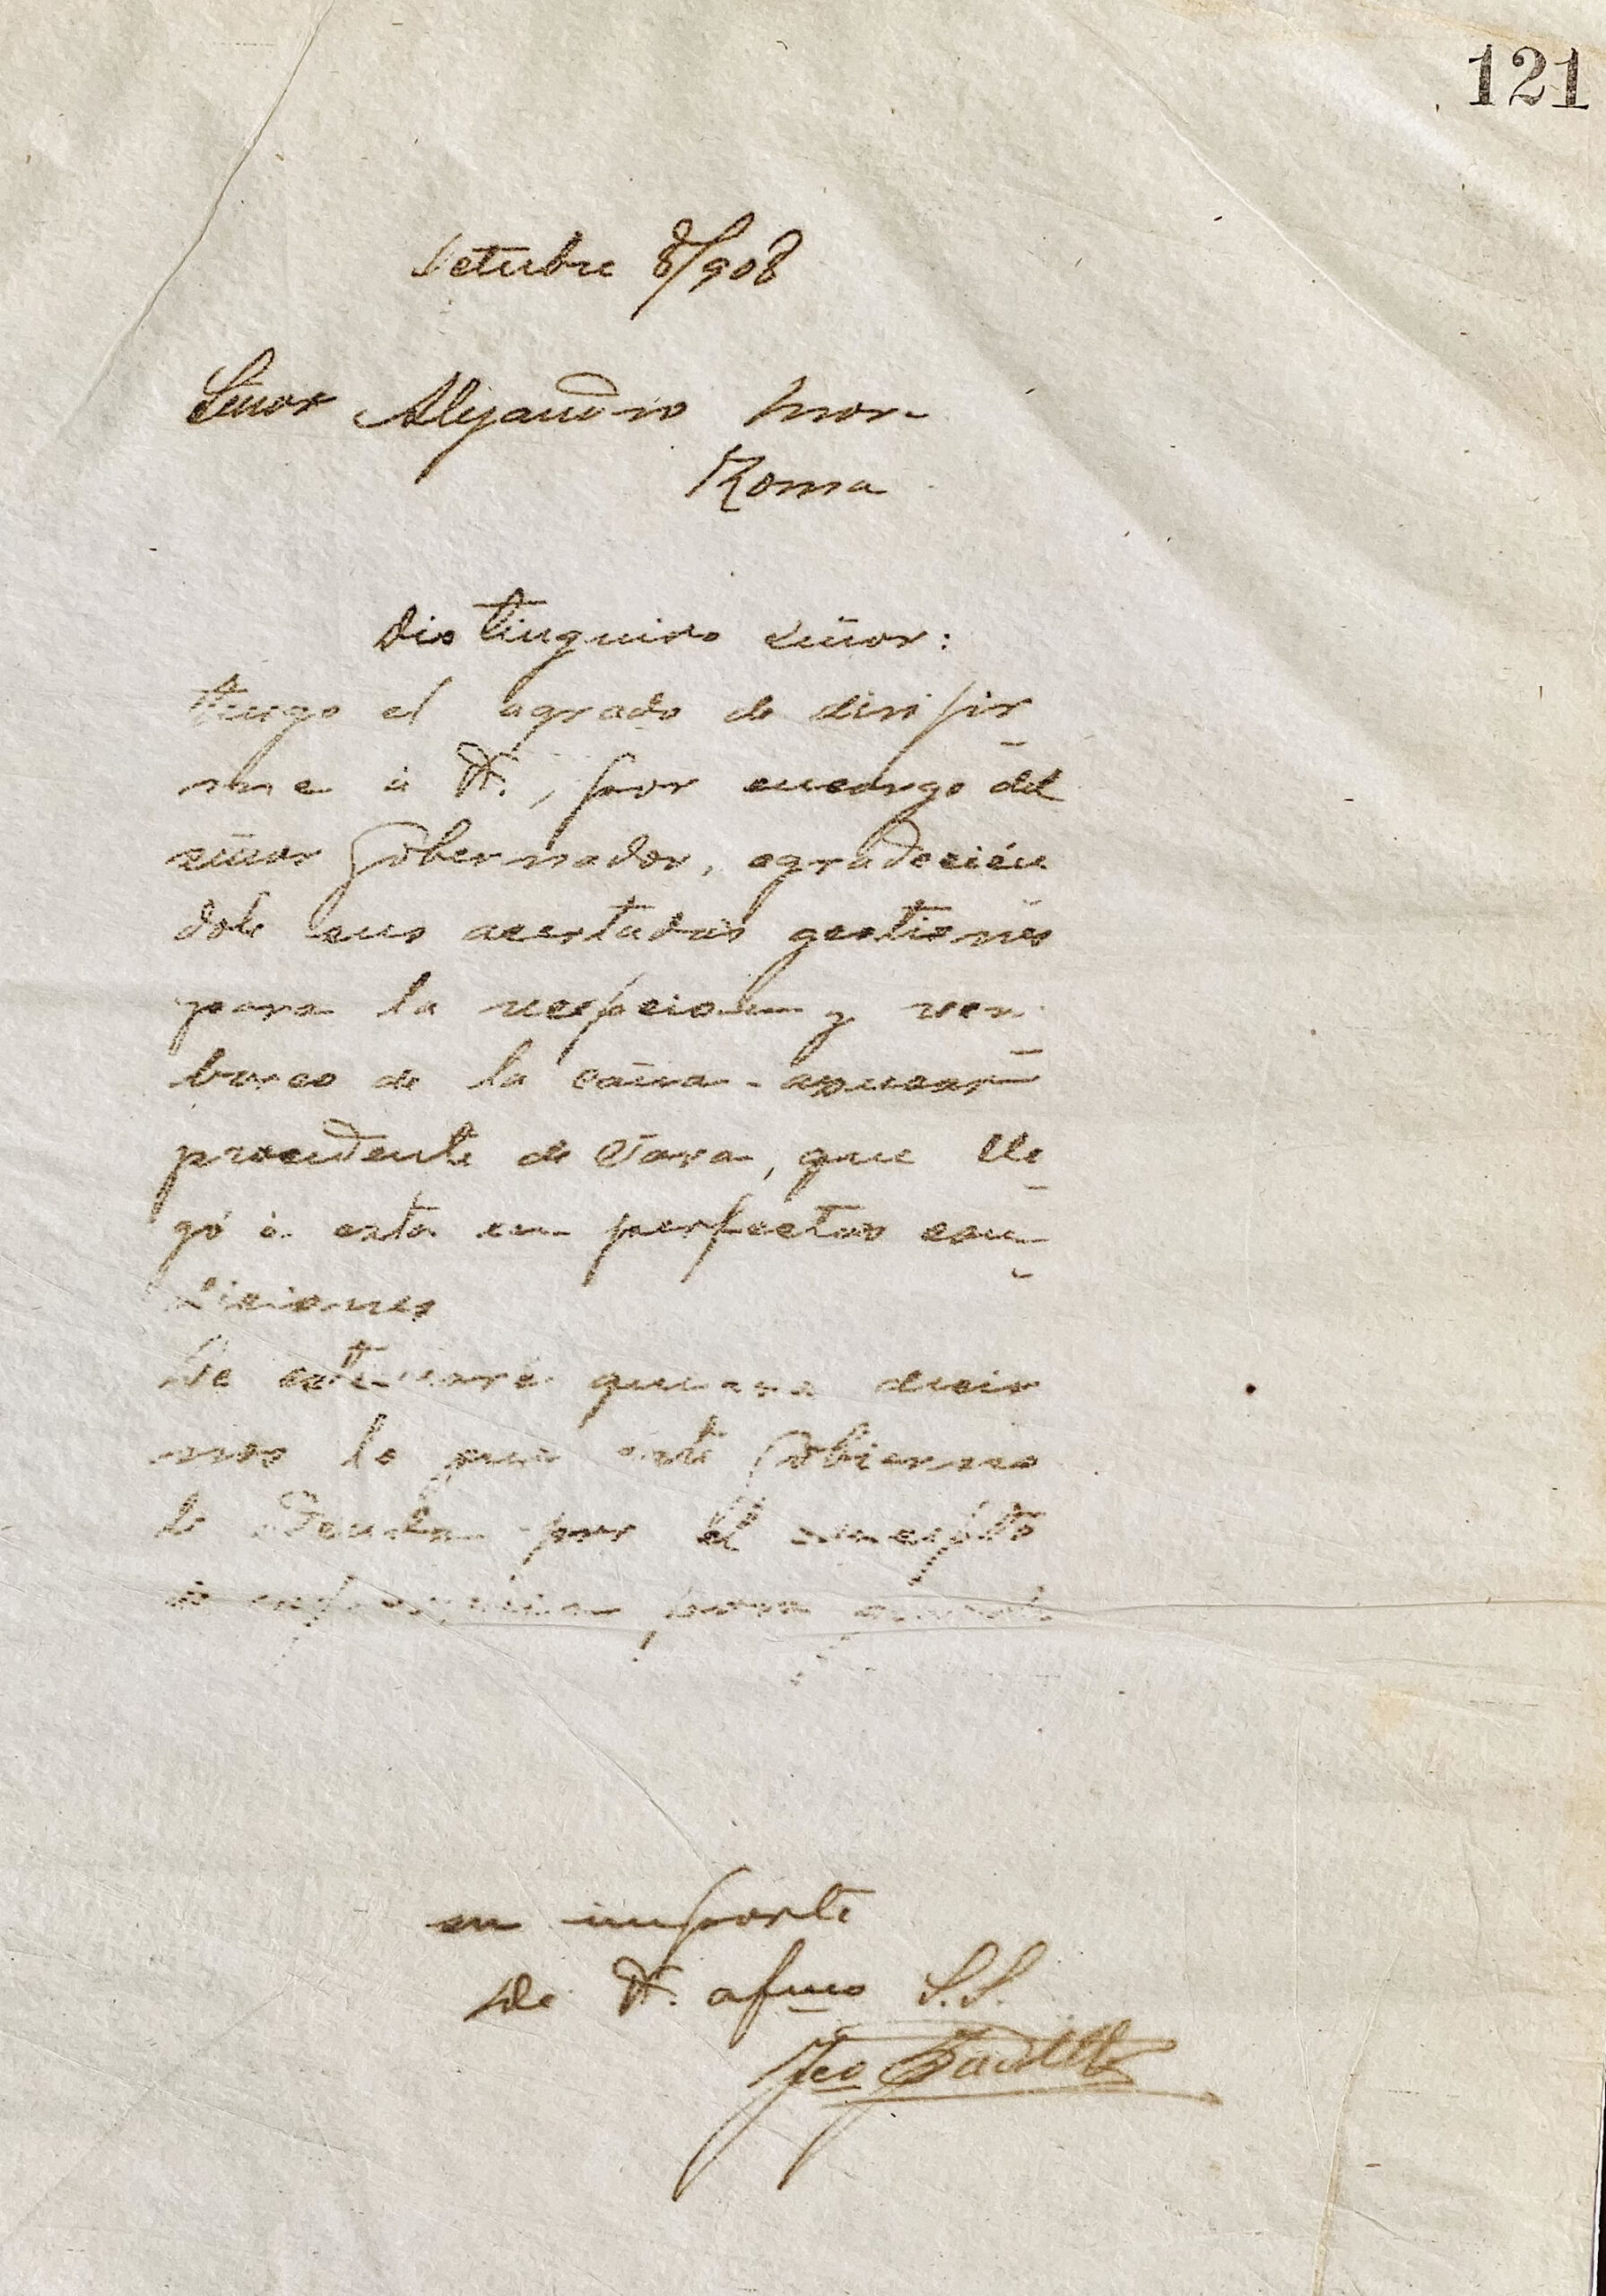 121
Setubre 8/908
Señor Alejandro Mon
Roma
Distinguido señor:
tengo el agrado de dirijir
me á V., por encargo del
señor Gobernador, agradecién
dole sus acertadas gestiones
para la recepcion y reem
barco de la caña-azucar
procedente de Java, que lle
gó á esta en perfectas con
diciones
De estimaré quiera decir
nos lo que este Gobierno
le deuda por el concepto
para
su importe
De V. afmo S.S.